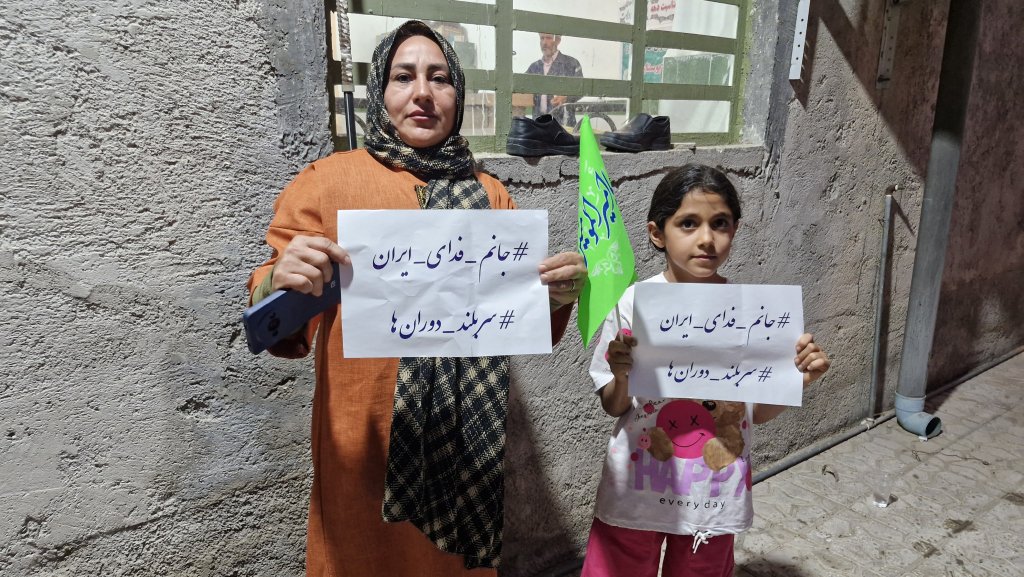 #جانم_فدای_ایران
#سربلند_دوران‌ها
#جانم_فدای_ایران
#سربلند_دوران‌ها
HAPPY
every day